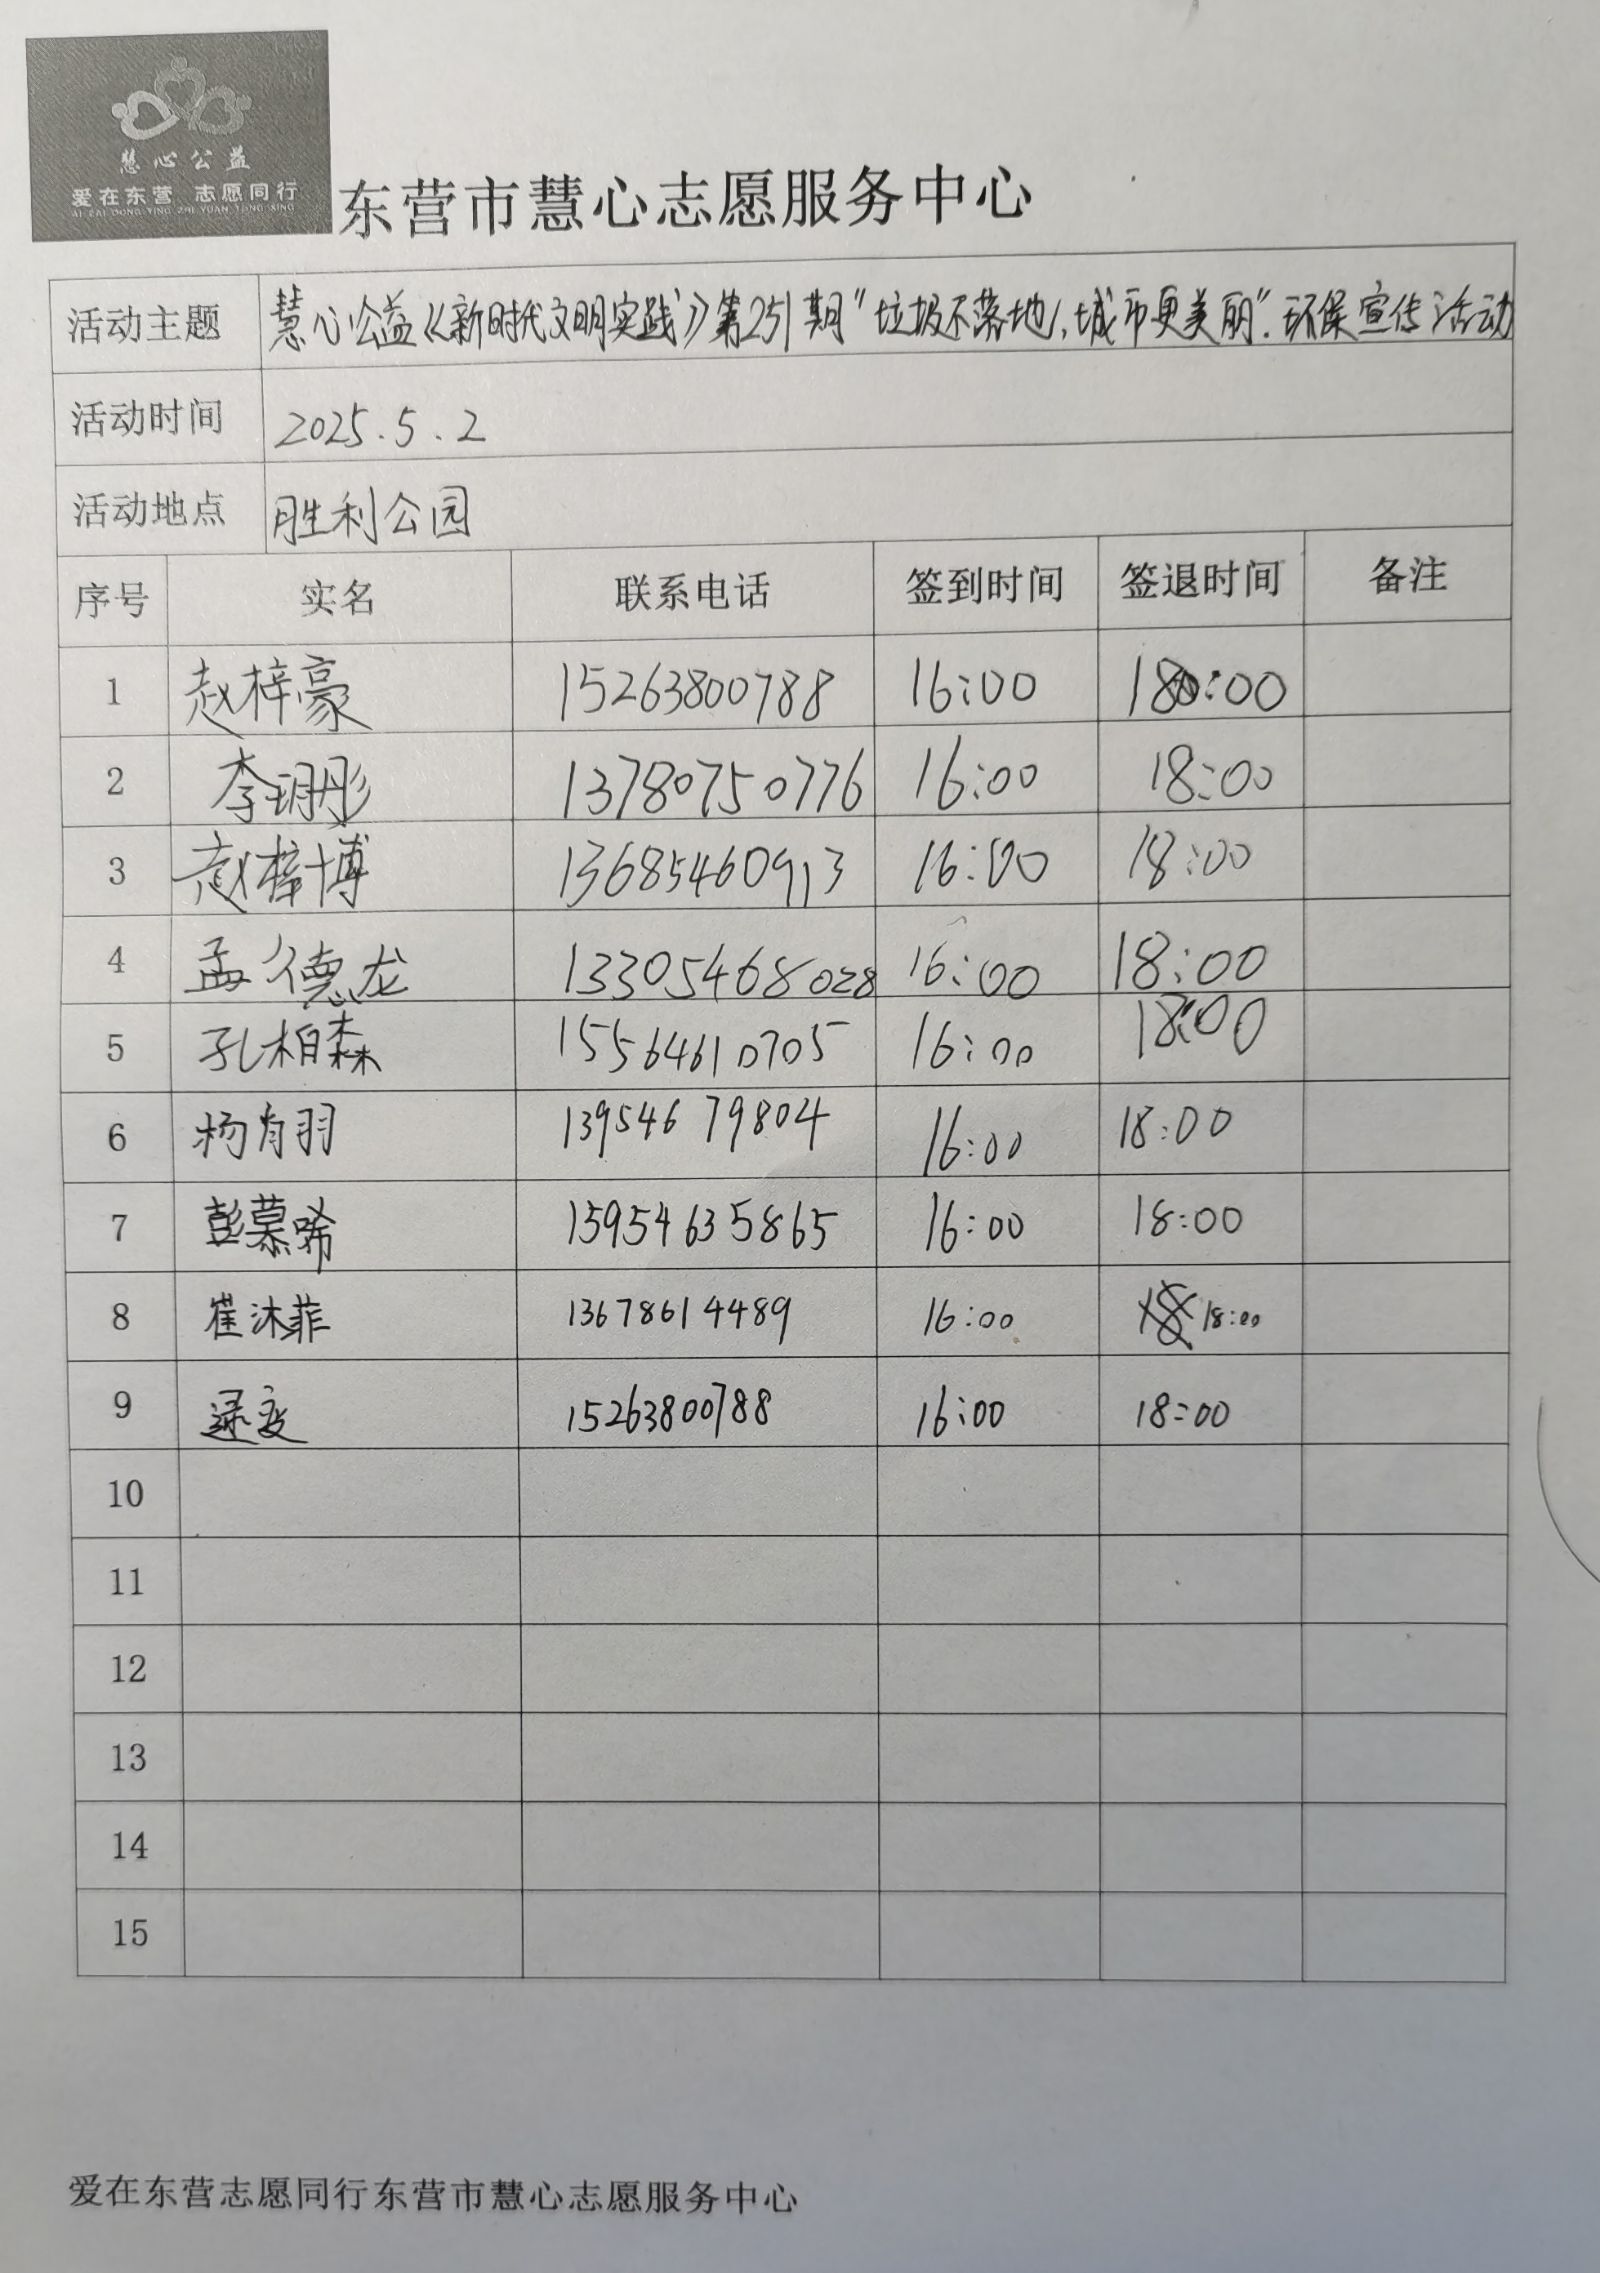 慧心公益
爱在东营 志愿同行
AI ZAI DONG YING ZHI YUAN TONG XING
东营市慧心志愿服务中心
活动主题 慧心公益《新时代文明实践》第251期"垃圾不落地,城市更美丽".环保宣传活动
活动时间 2025.5.2
活动地点 胜利公园
序号 实名 联系电话 签到时间 签退时间 备注
1 赵梓豪 15263800788 16:00 18:00
2 李玥彤 13780750776 16:00 18:00
3 赵梓博 13685460913 16:00 18:00
4 孟德龙 13305468028 16:00 18:00
5 孔柏森 15564610705 16:00 18:00
6 杨肯羽 13954679804 16:00 18:00
7 彭慕唏 15954635865 16:00 18:00
8 崔沐菲 13678614489 16:00 18:00
9 15263800788 16:00 18:00
10
11
12
13
14
15
爱在东营志愿同行东营市慧心志愿服务中心